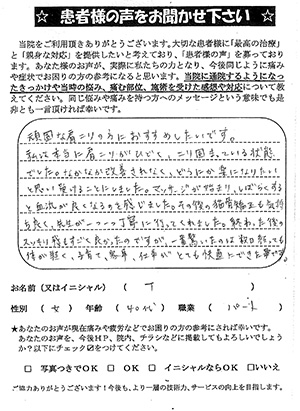 ★患者様の声をお聞かせ下さい★
当院をご利用頂きありがとうございます。大切な患者様に「最高の治療」
と「親身な対応」を提供したいと考えており、「患者様の声」を募っており
ます。あなた様のお声が、実際に私たちの力となり、今後同じように痛み
や症状でお困りの方の参考になると思います。当院に通院するようになっ
たきっかけや当時の悩み、痛む部位、施術を受けた感想や対応について教
えてください。同じ悩みや痛みを持つ方へのメッセージという意味でも是
非とも一言頂ければ幸いです。
頑固な肩こりの方におすすめしたいです。
私は本当に肩こりがひどく、こり固まっている状態
でした。なかなか改善されなく、どうにか楽になりたい
と思い受けることにしました。マッサージが始まり、しばらくする
と血流が良くなるのを感じました。その後の猫背矯正も気持
ち良く、先生が一つ一つ丁寧に行ってくれました。終わった後の
スッキリ感もすごく良かったのですが、一番驚いたのは数日経っても
体が軽く、子育て、家事、仕事がとても快適にできた事です。
お名前（又はイニシャル） （ T ）
性別（女） 年齢（40代） 職業（パート）
★あなたのお声が現在痛みや疲労などでお困りの方の参考にされば幸いです。
あなたのお声を、今後HP、院内、チラシなどに掲載してもよろしいでしょう
か？以下にチェック☑をつけてください。
□ 写真つきでOK □ OK □ イニシャルならOK □いいえ
ご協力ありがとうございます！今後も、より一層の技術力、サービスの向上を目指します。